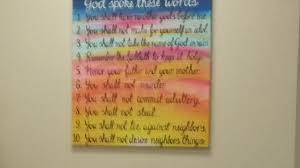 God spoke these words
1. You shall have no other gods before me.
2. You shall not make for yourself an idol.
3. You shall not take the name of God in vain
4. Remember the Sabbath to keep it holy.
5. Honor your father and your mother.
6. You shall not murder.
7. You shall not commit adultery.
8. You shall not steal.
9. You shall not lie against neighbors.
10. You shall not desire neighbors things.